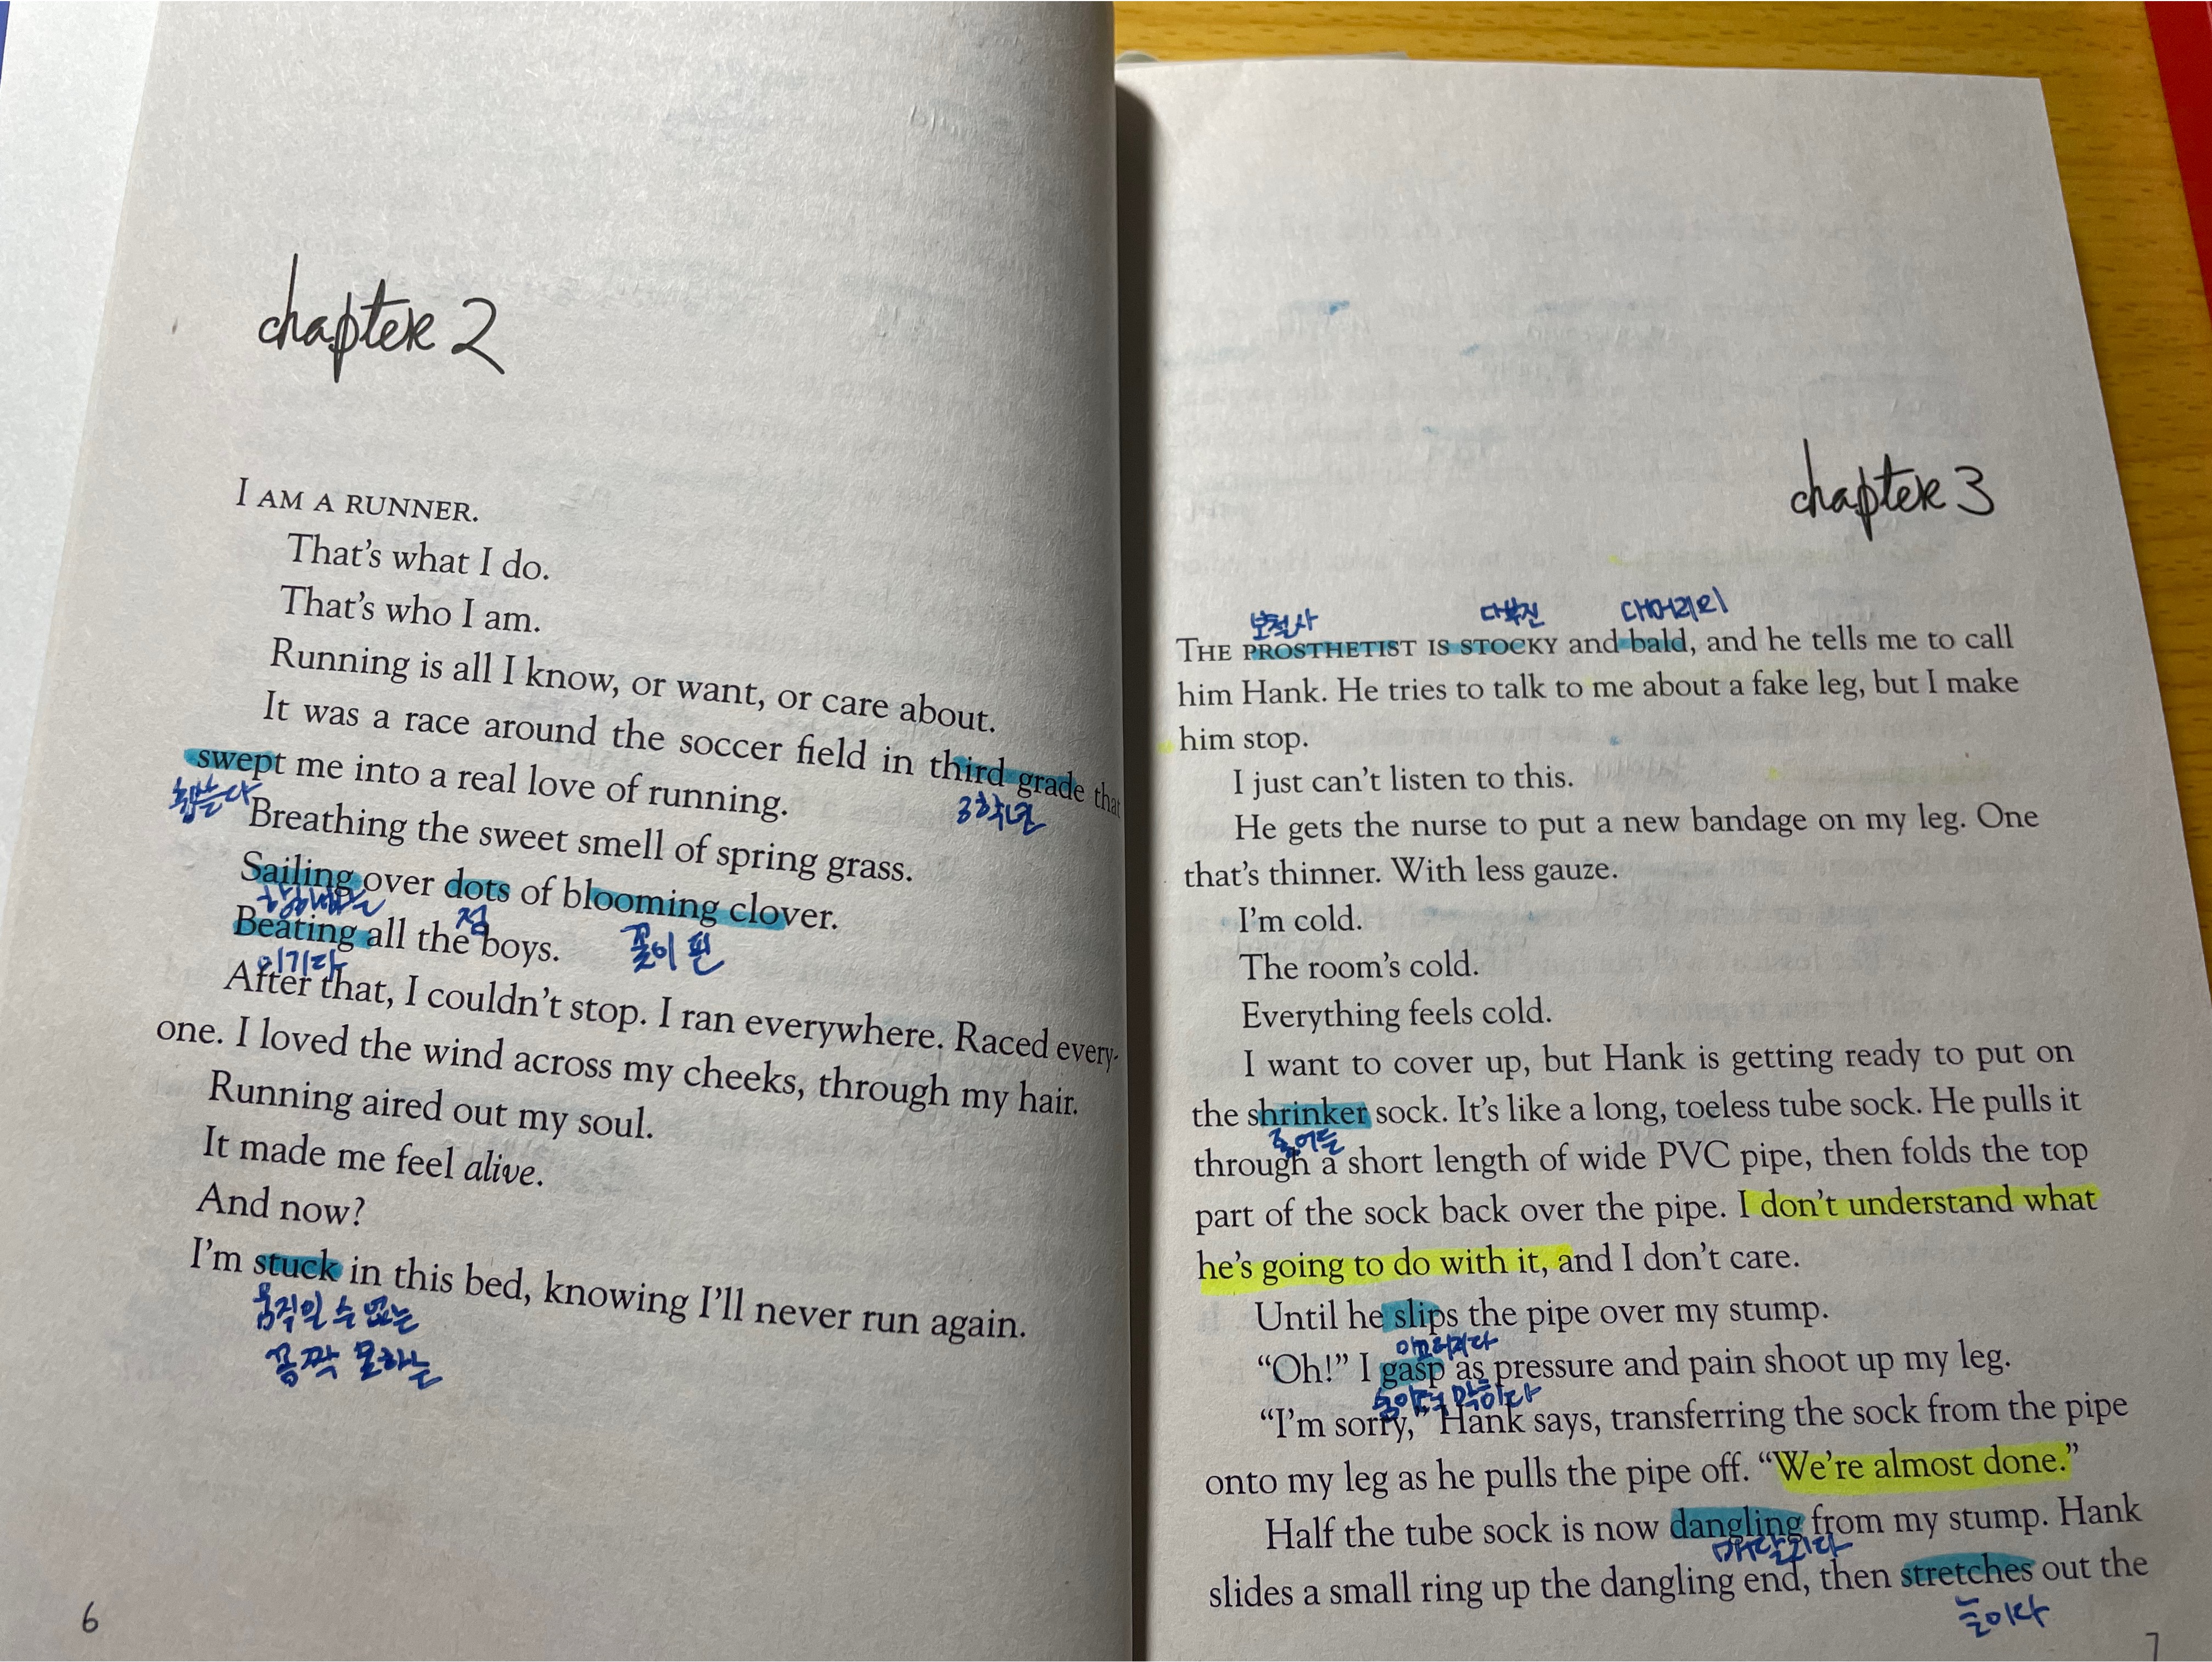 chapter 2
I AM A RUNNER.
That's what I do.
That's who I am.
Running is all I know, or want, or care about.
It was a race around the soccer field in third grade that
swept me into a real love of running.
휩쓴다
3학년
Breathing the sweet smell of spring grass.
Sailing over dots of blooming clover.
점
꽃이 핀
Beating all the boys.
이기다
After that, I couldn't stop. I ran everywhere. Raced every-
one. I loved the wind across my cheeks, through my hair.
Running aired out my soul.
It made me feel alive.
And now?
I'm stuck in this bed, knowing I'll never run again.
움직일 수 없는
꼼짝 못하는
6
chapter 3
보철사 다부진 대머리의
THE PROSTHETIST IS STOCKY and bald, and he tells me to call
him Hank. He tries to talk to me about a fake leg, but I make
him stop.
I just can't listen to this.
He gets the nurse to put a new bandage on my leg. One
that's thinner. With less gauze.
I'm cold.
The room's cold.
Everything feels cold.
I want to cover up, but Hank is getting ready to put on
the shrinker sock. It's like a long, toeless tube sock. He pulls it
줄어듦
through a short length of wide PVC pipe, then folds the top
part of the sock back over the pipe. I don't understand what
he's going to do with it, and I don't care.
Until he slips the pipe over my stump.
미끄러지다
"Oh!" I gasp as pressure and pain shoot up my leg.
숨이 턱 막히다
"I'm sorry," Hank says, transferring the sock from the pipe
onto my leg as he pulls the pipe off. "We're almost done."
Half the tube sock is now dangling from my stump. Hank
매달리다
slides a small ring up the dangling end, then stretches out the
늘이다
7